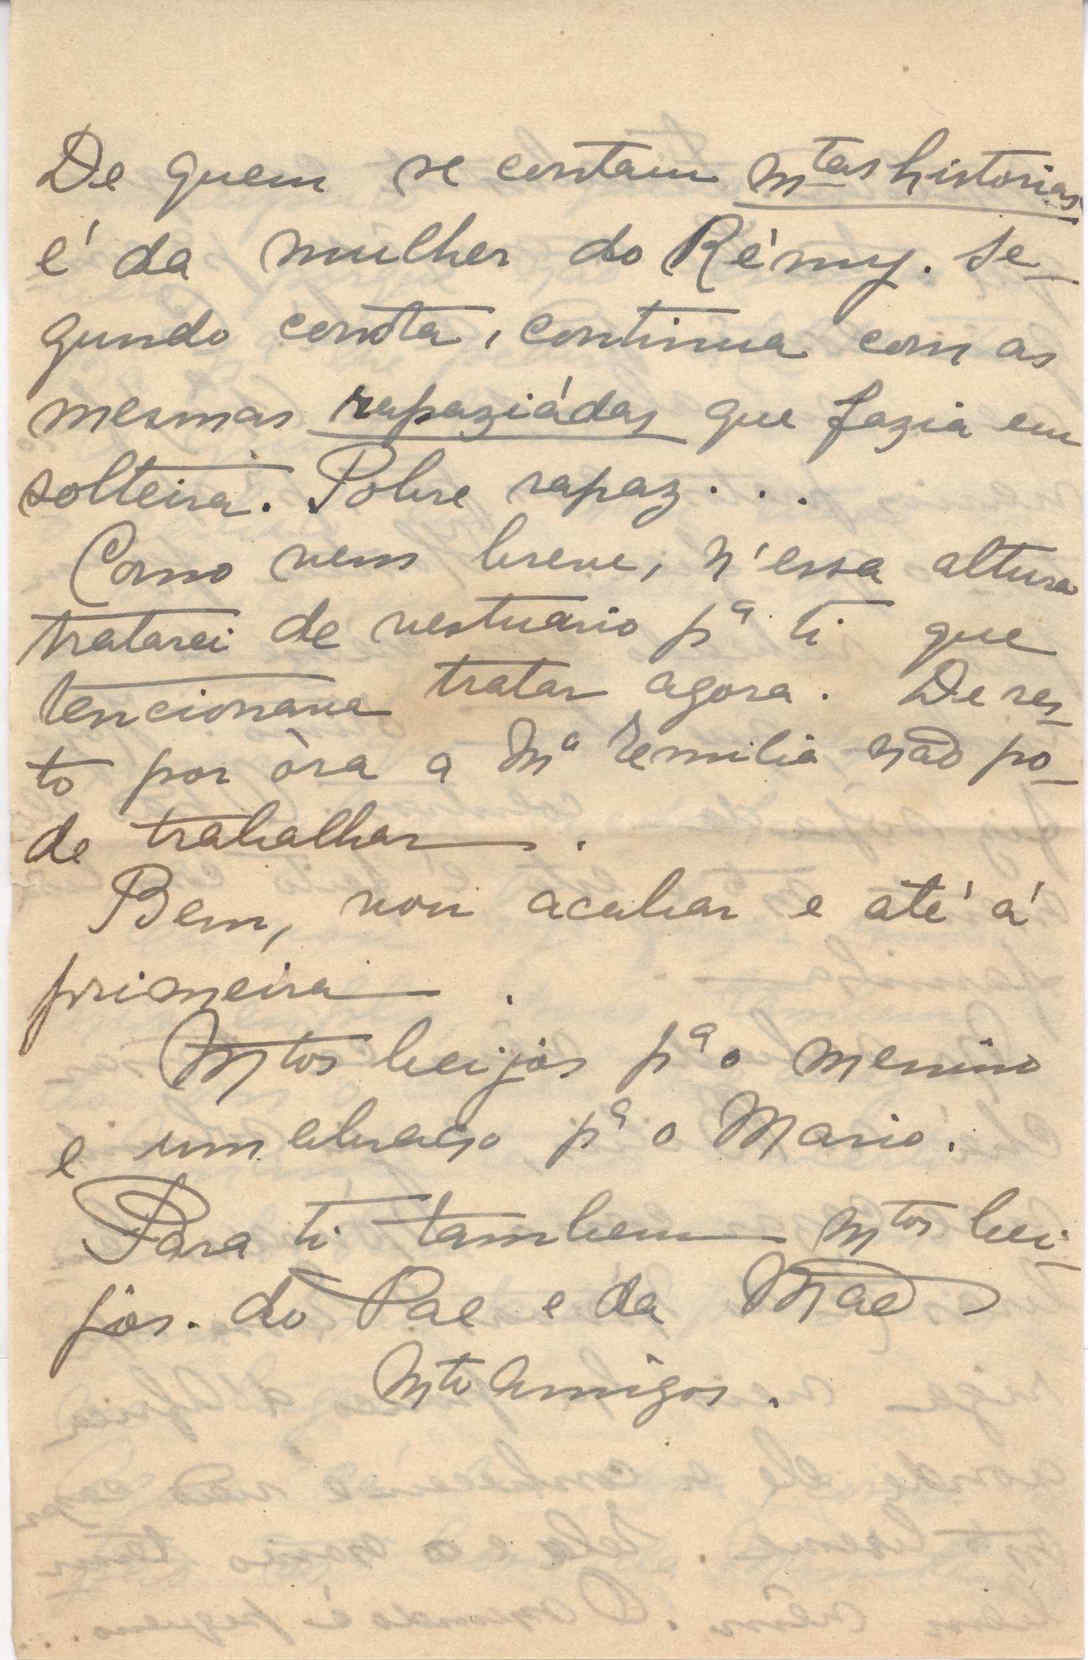 De quem se contam mtas historias
é da mulher do Rémy. Se-
gundo consta, continua com as
mesmas rapaziádas que fazia em
solteira. Pobre rapaz...
Como vens breve, n'essa altura
tratarei de vestuario pª ti que
tencionava tratar agora. De res-
to por óra a Mª Emilia não po-
de trabalhar.
Bem, vou acabar e até á
primeira.
Mtos beijos pª o menino
e um abraço pª o Mario.
Para ti tambem mtos bei-
jos. do Pae e da Mãe
Mto Amigos.